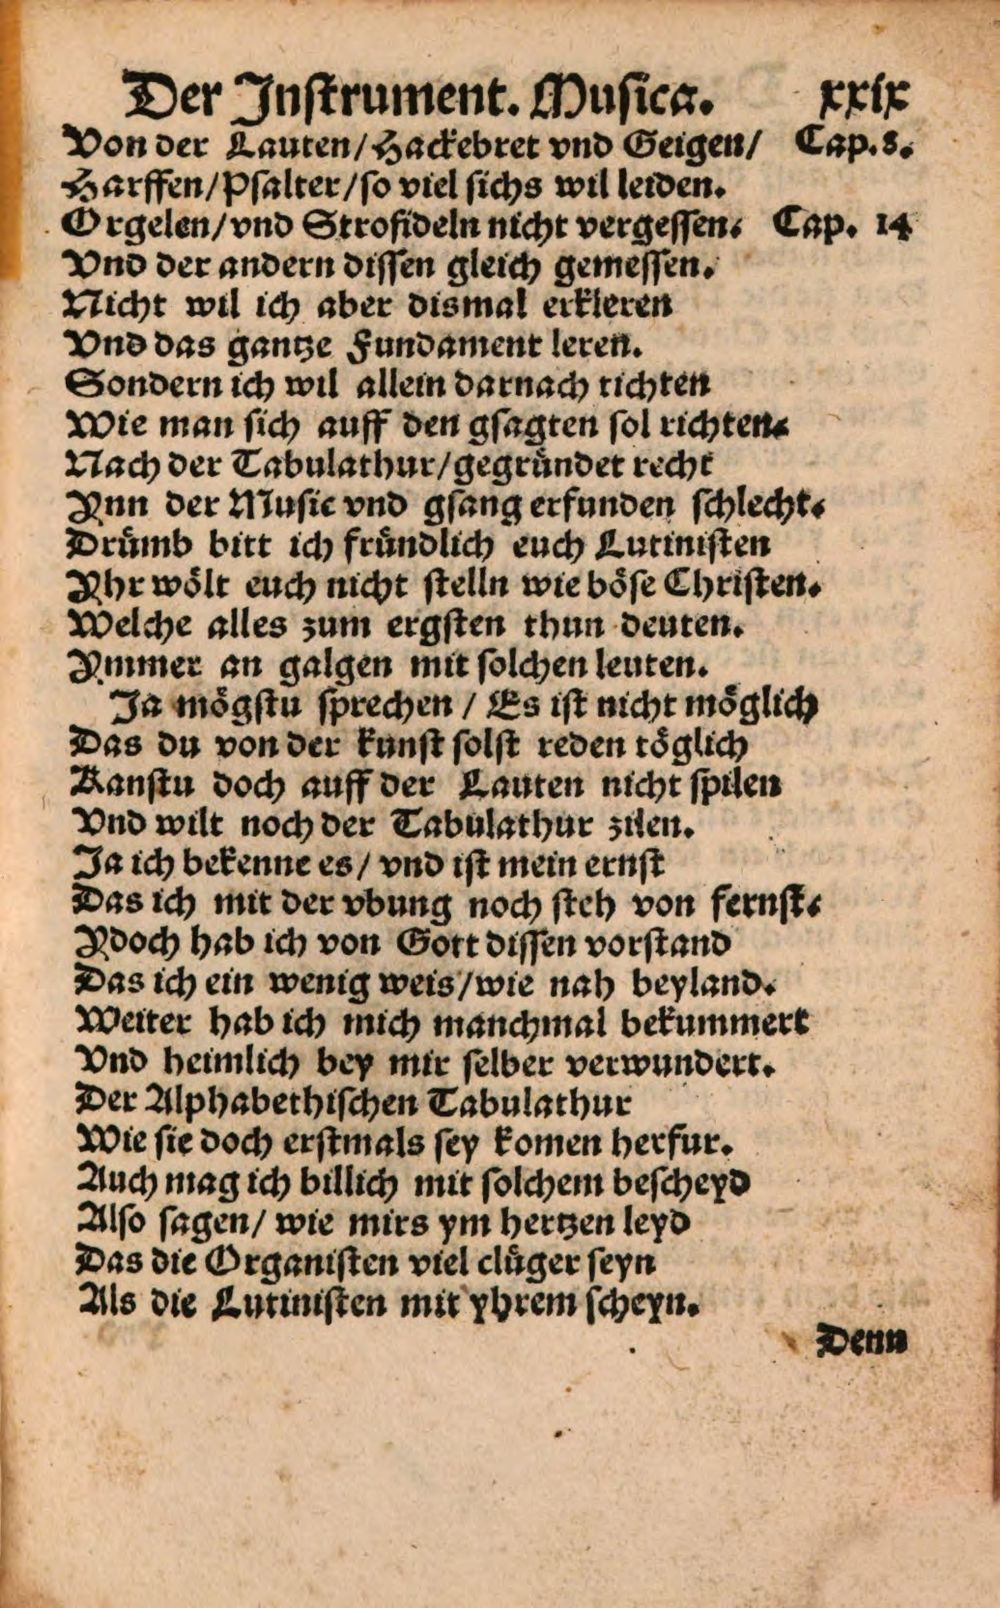 Der Instrument. Musica. xxix
Von der Lauten/Hackebret vnd Geigen/ Cap.8.
Harffen/Psalter/so viel sichs wil leiden.
Orgelen/vnd Strofideln nicht vergessen. Cap. 14
Vnd der andern dissen gleich gemessen.
Nicht wil ich aber dismal erkleren
Vnd das gantze Fundament leren.
Sondern ich wil allein darnach tichten
Wie man sich auff den gsagten sol richten.
Nach der Tabulathur/gegründet recht
Ynn der Music vnd gsang erfunden schlecht.
Drümb bitt ich fründlich euch Lutinisten
Yhr wölt euch nicht stelln wie böse Christen.
Welche alles zum ergsten thun deuten.
Ymmer an galgen mit solchen leuten.
Ja mögstu sprechen / Es ist nicht möglich
Das du von der kunst solst reden töglich
Kanstu doch auff der Lauten nicht spilen
Vnd wilt noch der Tabulathur zilen.
Ja ich bekenne es/ vnd ist mein ernst
Das ich mit der vbung noch steh von fernst.
Ydoch hab ich von Gott dissen vorstand
Das ich ein wenig weis/wie nah beyland.
Weiter hab ich mich manchmal bekummert
Vnd heimlich bey mir selber verwundert.
Der Alphabethischen Tabulathur
Wie sie doch erstmals sey komen herfur.
Auch mag ich billich mit solchem bescheyd
Also sagen/ wie mirs ym hertzen leyd
Das die Organisten viel clüger seyn
Als die Lutinisten mit yhrem scheyn.
Denn